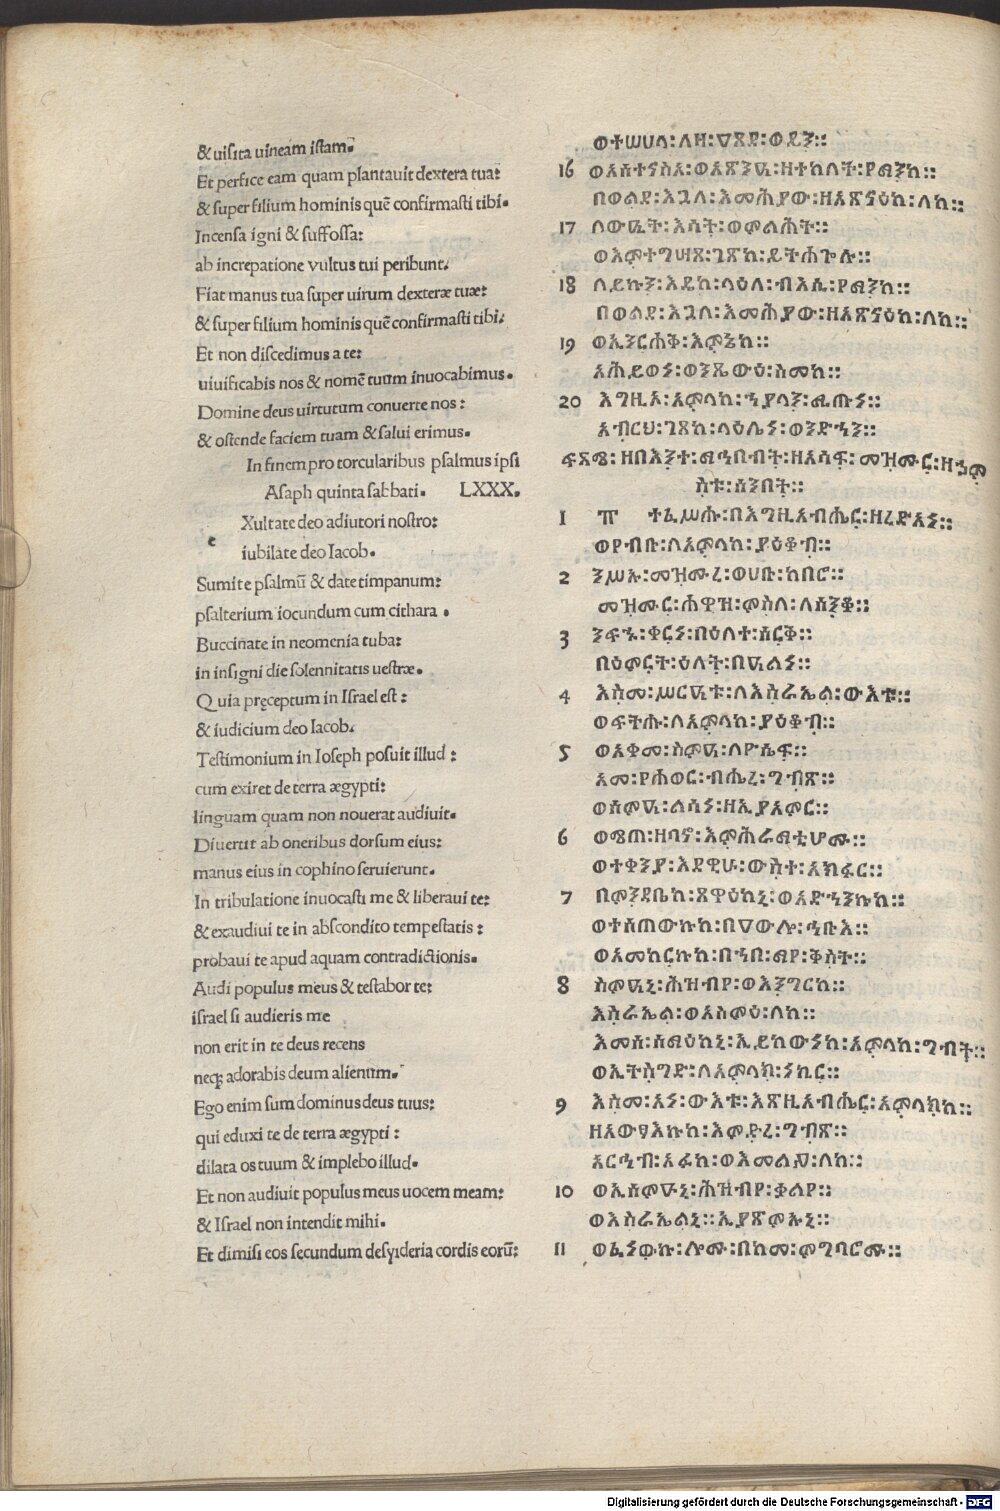 & uiſita uineam iſtam.
Et perfice eam quam plantauit dextera tua:
& ſuper filium hominis quē confirmaſti tibi.
Incenſa igni & ſuffoſſa:
ab increpatione vultus tui peribunt.
Fiat manus tua ſuper uirum dexteræ tuæ:
& ſuper filium hominis quē confirmaſti tibi.
Et non diſcedimus a te:
uiuificabis nos & nomē tuum inuocabimus.
Domine deus uirtutum conuerte nos :
& oſtende faciem tuam & ſalui erimus.
In finem pro torcularibus pſalmus ipſi
Aſaph quinta ſabbati. LXXX.
e Xultate deo adiutori noſtro:
iubilate deo Iacob.
Sumite pſalmū & date timpanum:
pſalterium iocundum cum cithara .
Buccinate in neomenia tuba:
in inſigni die ſolennitatis ueſtræ.
Quia pręceptum in Iſrael eſt :
& iudicium deo Iacob.
Teſtimonium in Ioſeph poſuit illud :
cum exiret de terra ægypti:
linguam quam non nouerat audiuit.
Diuertit ab oneribus dorſum eius:
manus eius in cophino ſeruierunt.
In tribulatione inuocaſti me & liberaui te:
& exaudiui te in abſcondito tempeſtatis :
probaui te apud aquam contradictionis.
Audi populus meus & teſtabor te:
iſrael ſi audieris me
non erit in te deus recens
neq; adorabis deum alienum.
Ego enim ſum dominus deus tuus:
qui eduxi te de terra ægypti :
dilata os tuum & implebo illud.
Et non audiuit populus meus uocem meam:
& Iſrael non intendit mihi.
Et dimiſi eos ſecundum deſyderia cordis eorū:
ወተሠሀላ፡ለዛ፡ዐጸደ፡ወይን።
16 ወአስተናስአ፡ወአጽንዓ፡ዘተከለት፡የማንከ።
በወልደ፡እጓለ፡እመሕያው፡ዘአጽናዕከ፡ለከ።
17 ለውዒት፡እሳት፡ወምልሕት።
ወእምተግሣጸ፡ገጽከ፡ይትሐጐሉ።
18 ለይኩን፡እዴከ፡ላዕለ፡ብእሲ፡የማንከ።
በወልደ፡እጓለ፡እመሕያው፡ዘአጽናዕከ፡ለከ።
19 ወኢንርሐቅ፡እምኔከ።
አሕይወነ፡ወንጼውዕ፡ስመከ።
20 እግዚኦ፡አምላከ፡ኀያላን፡ሚጠነ።
አብርህ፡ገጸከ፡ላዕሌነ፡ወንድኅን።
ፍጻሜ፡ዘበእንተ፡ማኅበብት፡ዘአሳፍ፡መዝሙር፡ዘኀም
ስቱ፡ሰንበት።
1 ፹ ተፈሥሑ፡በእግዚአብሔር፡ዘረድአነ።
ወየብቡ፡ለአምላከ፡ያዕቆብ።
2 ንሥኡ፡መዝሙረ፡ወሀቡ፡ከበሮ።
መዝሙር፡ሐዋዝ፡ምስለ፡ለሰንቆ።
3 ንፍኁ፡ቀርነ፡በዕለተ፡ሰርቅ።
በዕምርት፡ዕለት፡በዓልነ።
4 እስመ፡ሥርዓቱ፡ለእስራኤል፡ውእቱ።
ወፍትሑ፡ለአምላከ፡ያዕቆብ።
5 ወአቀመ፡ስምዓ፡ለዮሴፍ።
አመ፡የሐወር፡ብሔረ፡ግብጽ።
ወሰምዓ፡ልሳነ፡ዘኢያአምር።
6 ወሜጠ፡ዘባኖ፡እምሕራማቲሆሙ።
ወተቀንያ፡እደዊሁ፡ውስተ፡አክፋር።
7 በምንዳቤከ፡ጸዋዕከኒ፡ወአድኀንኩከ።
ወተሰጠውኩከ፡በዐውሎ፡ኅቡእ።
ወአመከርኩከ፡በኀበ፡ማየ፡ቅስት።
8 ስምዓኒ፡ሕዝብየ፡ወእንግርከ።
እስራኤል፡ወአስምዕ፡ለከ።
እመሰ፡ሰማዕከኒ፡ኢይከውነከ፡አምላከ፡ግብት።
ወኢትስግድ፡ለአምላክ፡ነኪር።
9 እስመ፡አነ፡ውእቱ፡እግዚአብሔር፡አምላክከ።
ዘአውፃእኩከ፡እምድረ፡ግብጽ።
አርኅብ፡አፉከ፡ወእመልዖ፡ለከ።
10 ወኢሰምዓኒ፡ሕዝብየ፡ቃልየ።
ወእስራኤልኒ።ኢያጽምኡኒ።
11 ወፈነውኩ፡ሎሙ፡በከመ፡ምግባሮሙ።
Digitalisierung gefördert durch die Deutsche Forschungsgemeinschaft - DFG